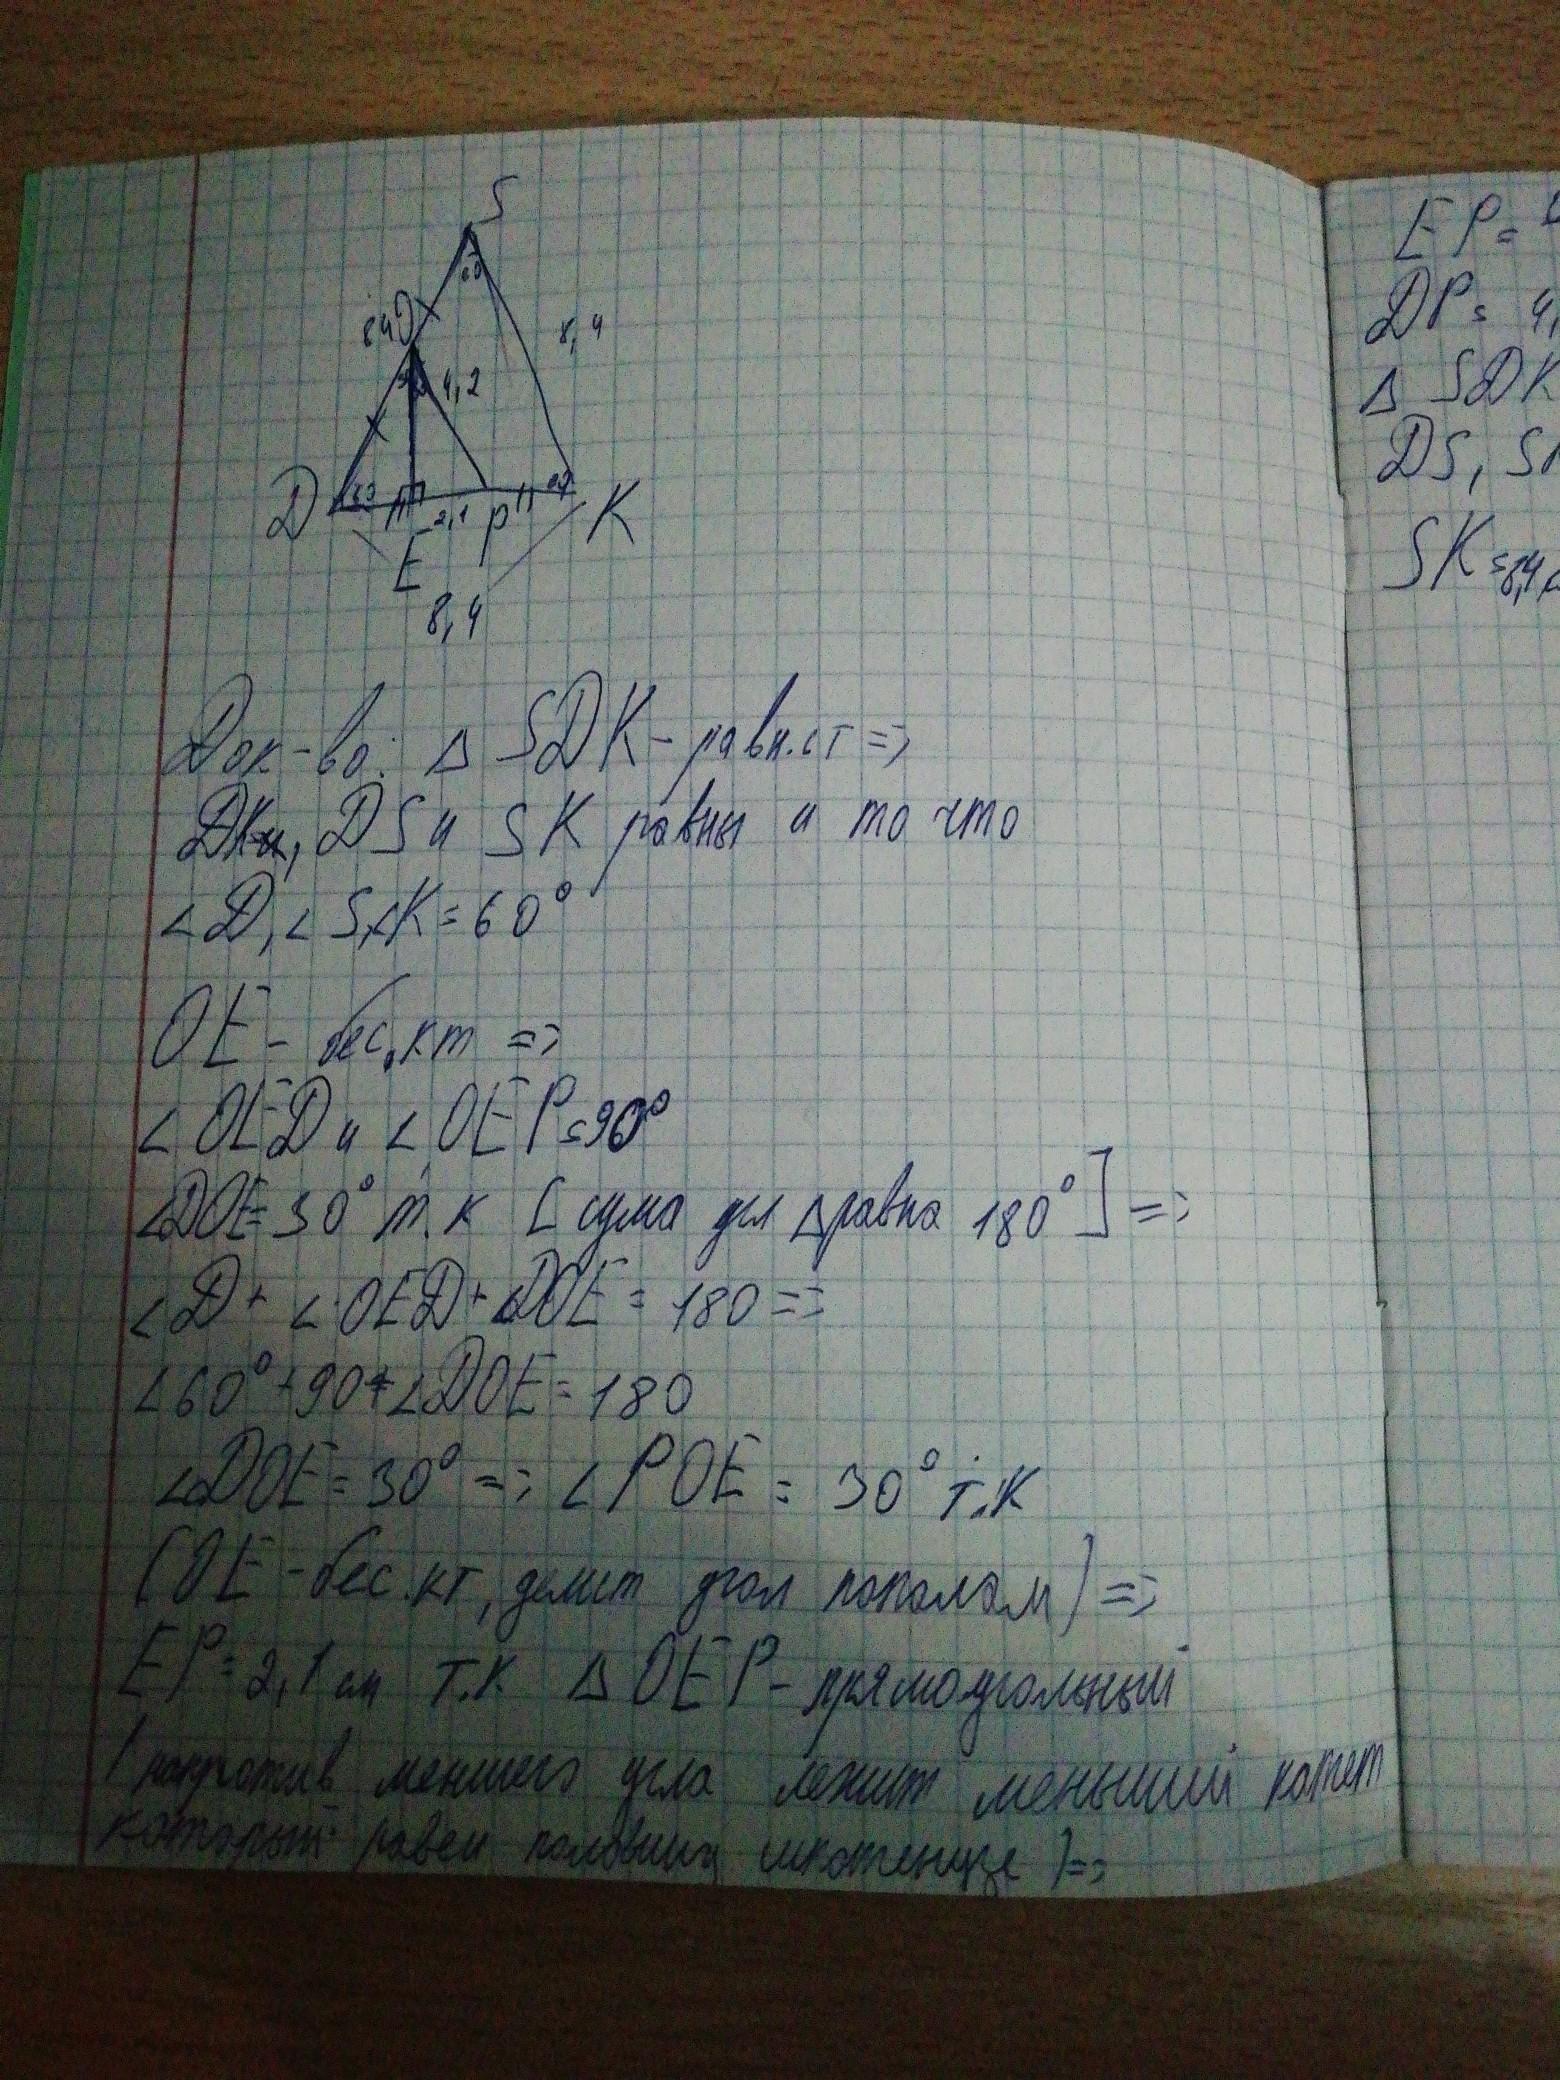 S
60
8,4
O
8,4
4,2
D
60
60
K
E
2,1
P
8,4
Док-во: Δ SDK - равн.ст =>
DK, DS и SK равны и то что
∠D, ∠S, ∠K = 60°
OE - бес.кт =>
∠OED и ∠OEP = 90°
∠DOE = 30° т.к [сума угл Δ равна 180°] =>
∠D + ∠OED + ∠DOE = 180 =>
∠60° + 90 + ∠DOE = 180
∠DOE = 30° => ∠POE = 30° т.к
(OE - бес.кт, делит угол пополам) =>
EP = 2,1 см т.к Δ OEP - прямоугольный
(напротив меншего угла лежит меньший катет
который равен половину) =>
EP =
DP = 4,
Δ SDK
DS, S
SK = 8,4